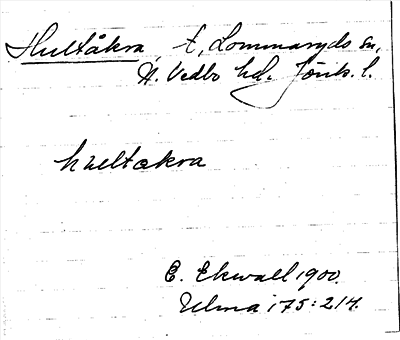 Hultåkra, t, Lommaryds sn,
N. Vedbo hd. Jönk. l.
hultakra
E. Ekwall 1900.
Ulma 175:214.